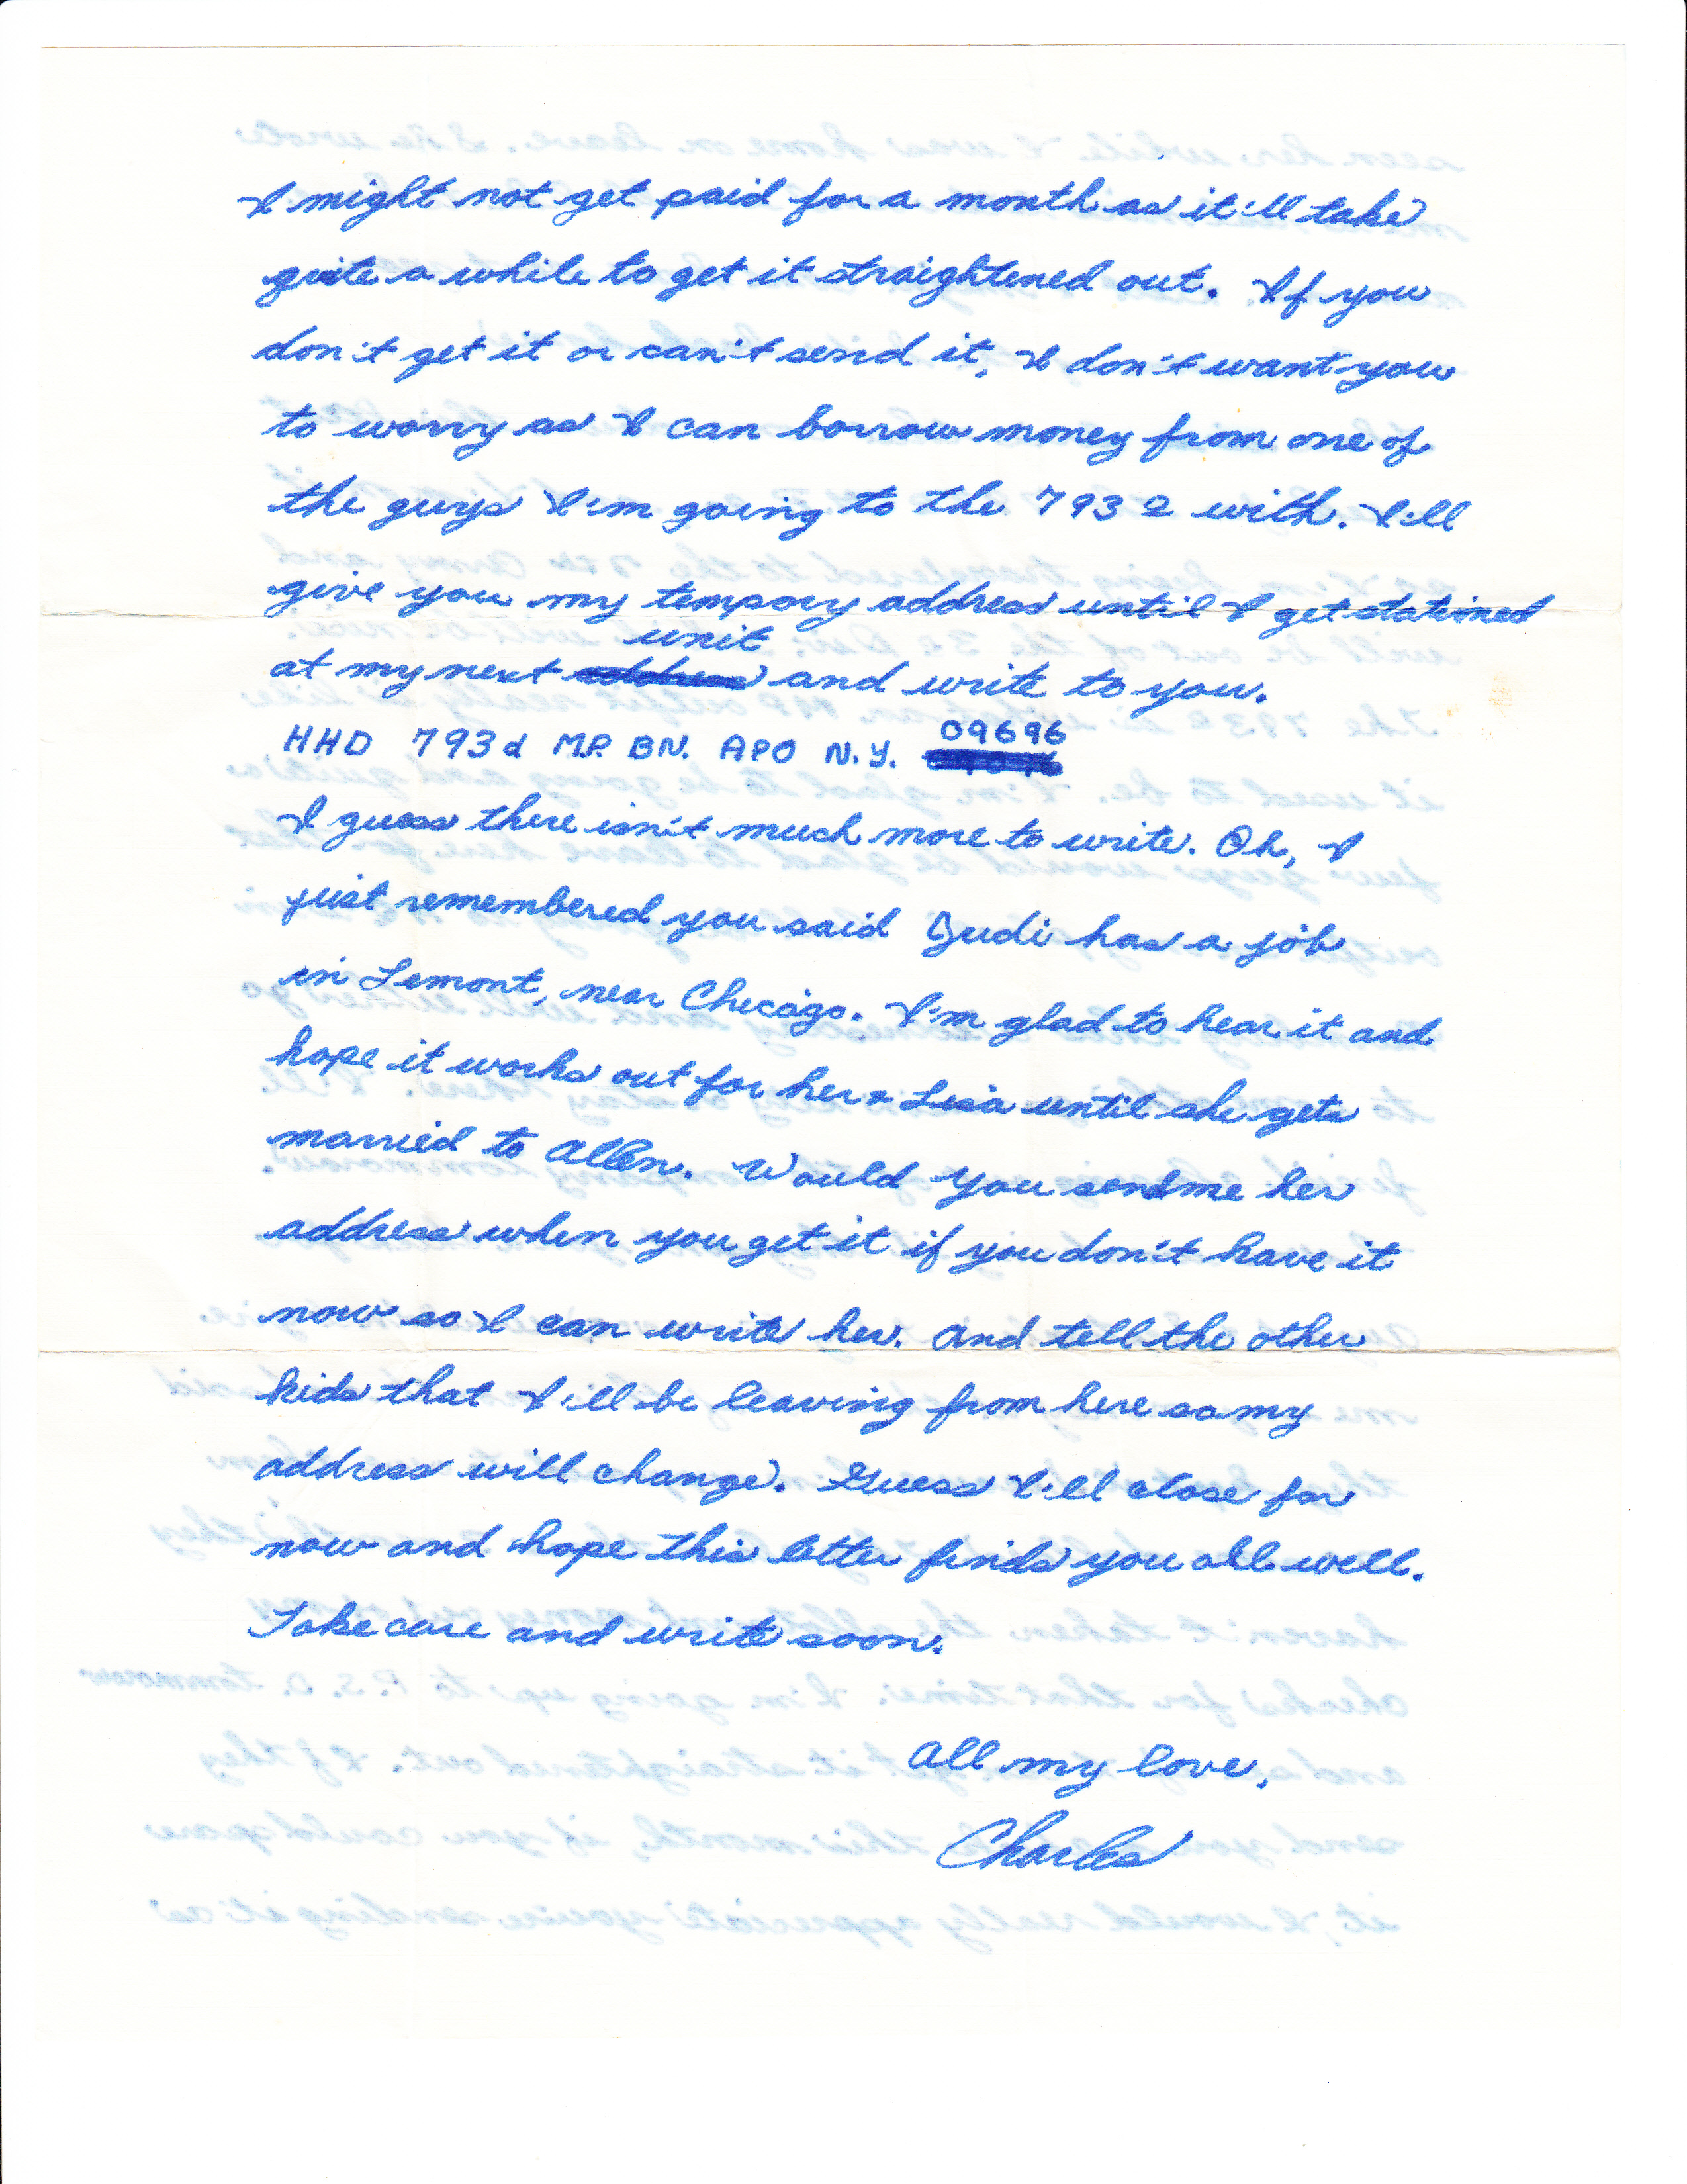 I might not get paid for a month as it'll take
quite a while to get it straightened out. If you
don't get it or can't send it, I don't want you
to worry as I can borrow money from one of
the guys I'm going to the 793d with. I'll
give you my tempory address until I get stationed
unit
at my next address and write to you.
09696
HHD 793d M.P. BN. APO N.Y.
I guess there isn't much more to write. Oh, I
just remembered you said Judi has a job
in Lemont, near Checago. I'm glad to hear it and
hope it works out for her & Lisa until she gets
married to Allen. Would you send me her
address when you get it if you don't have it
now so I can write her. And tell the other
kids that I'll be leaving from here so my
address will change. Guess I'll close for
now and hope this letter finds you all well.
Take care and write soon.
All my love,
Charles